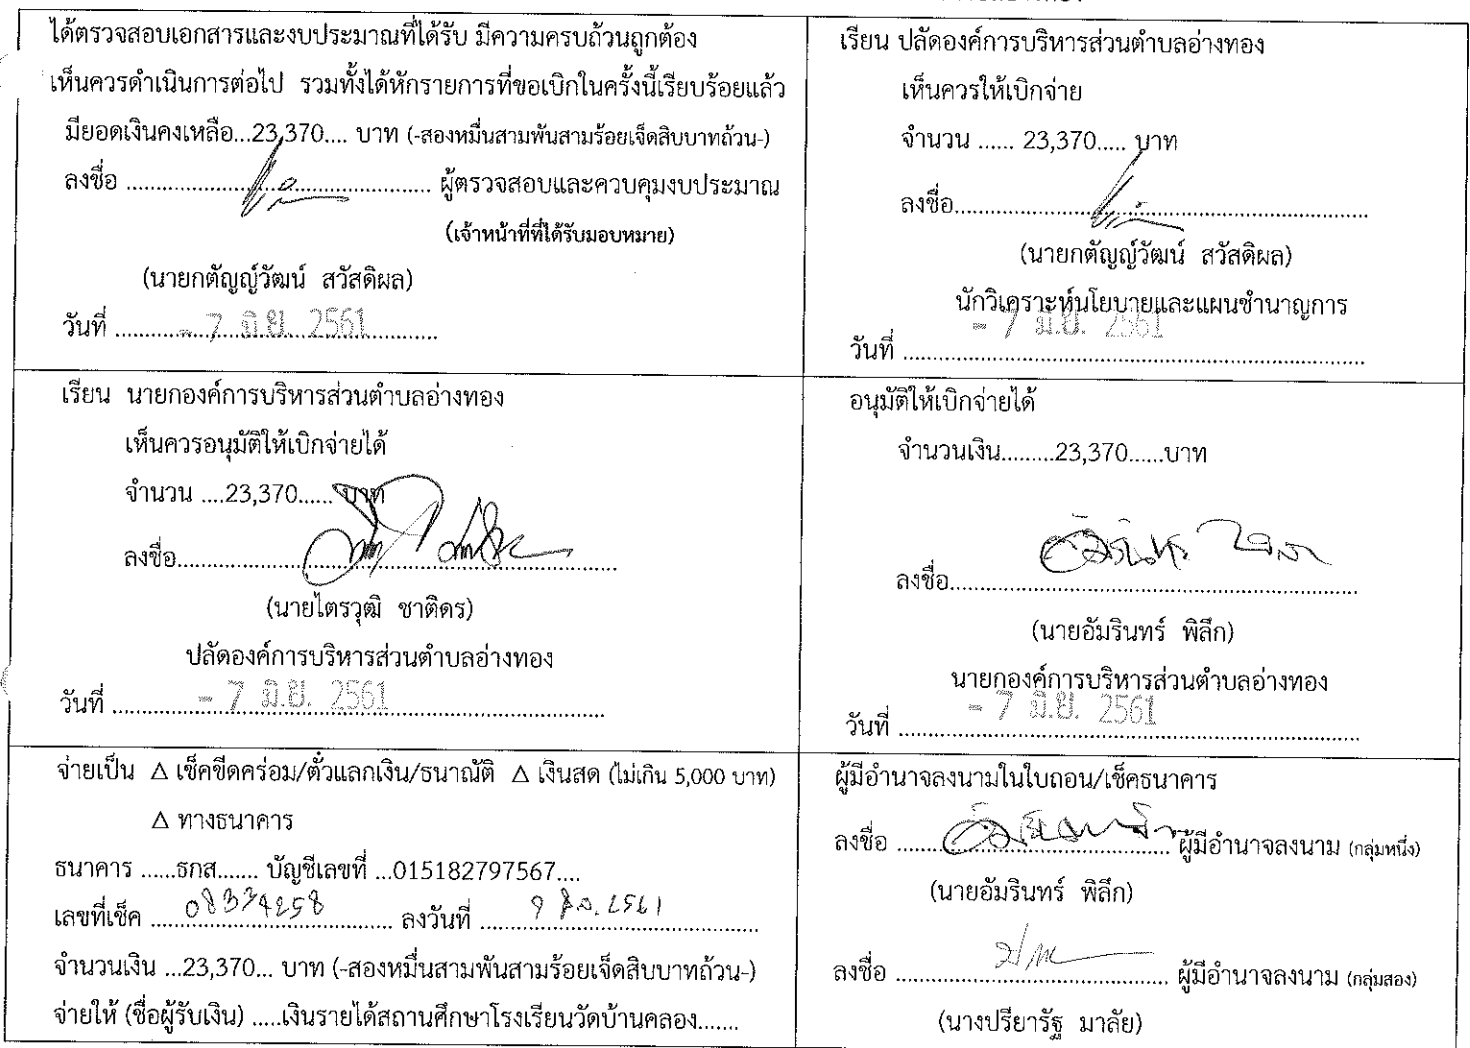 ได้ตรวจสอบเอกสารและงบประมาณที่ได้รับ มีความครบถ้วนถูกต้อง
เห็นควรดำเนินการต่อไป รวมทั้งได้หักรายการที่ขอเบิกในครั้งนี้เรียบร้อยแล้ว
มียอดเงินคงเหลือ...23,370.... บาท (-สองหมื่นสามพันสามร้อยเจ็ดสิบบาทถ้วน-)
ลงชื่อ ........................................ ผู้ตรวจสอบและควบคุมงบประมาณ
(เจ้าหน้าที่ที่ได้รับมอบหมาย)
(นายกตัญญ์วัฒน์ สวัสดิผล)
วันที่ ......- 7 มิ.ย. 2561......
เรียน ปลัดองค์การบริหารส่วนตำบลอ่างทอง
เห็นควรให้เบิกจ่าย
จำนวน ...... 23,370..... บาท
ลงชื่อ........................................
(นายกตัญญ์วัฒน์ สวัสดิผล)
นักวิเคราะห์นโยบายและแผนชำนาญการ
- 7 มิ.ย. 2561
วันที่ ........................................
เรียน นายกองค์การบริหารส่วนตำบลอ่างทอง
เห็นควรอนุมัติให้เบิกจ่ายได้
จำนวน ....23,370...... บาท
ลงชื่อ........................................
(นายไตรวุฒิ ชาติดร)
ปลัดองค์การบริหารส่วนตำบลอ่างทอง
วันที่ ......- 7 มิ.ย. 2561......
อนุมัติให้เบิกจ่ายได้
จำนวนเงิน.........23,370......บาท
ลงชื่อ........................................
(นายอัมรินทร์ พิลึก)
นายกองค์การบริหารส่วนตำบลอ่างทอง
- 7 มิ.ย. 2561
วันที่ ........................................
จ่ายเป็น Δ เช็คขีดคร่อม/ตั๋วแลกเงิน/ธนาณัติ Δ เงินสด (ไม่เกิน 5,000 บาท)
Δ ทางธนาคาร
ธนาคาร ......ธกส....... บัญชีเลขที่ ...015182797567....
เลขที่เช็ค ........................ ลงวันที่ ........................
จำนวนเงิน ...23,370... บาท (-สองหมื่นสามพันสามร้อยเจ็ดสิบบาทถ้วน-)
จ่ายให้ (ชื่อผู้รับเงิน) .....เงินรายได้สถานศึกษาโรงเรียนวัดบ้านคลอง.......
ผู้มีอำนาจลงนามในใบถอน/เช็คธนาคาร
ลงชื่อ ........................................ ผู้มีอำนาจลงนาม (กลุ่มหนึ่ง)
(นายอัมรินทร์ พิลึก)
ลงชื่อ ........................................ ผู้มีอำนาจลงนาม (กลุ่มสอง)
(นางปรียารัฐ มาลัย)